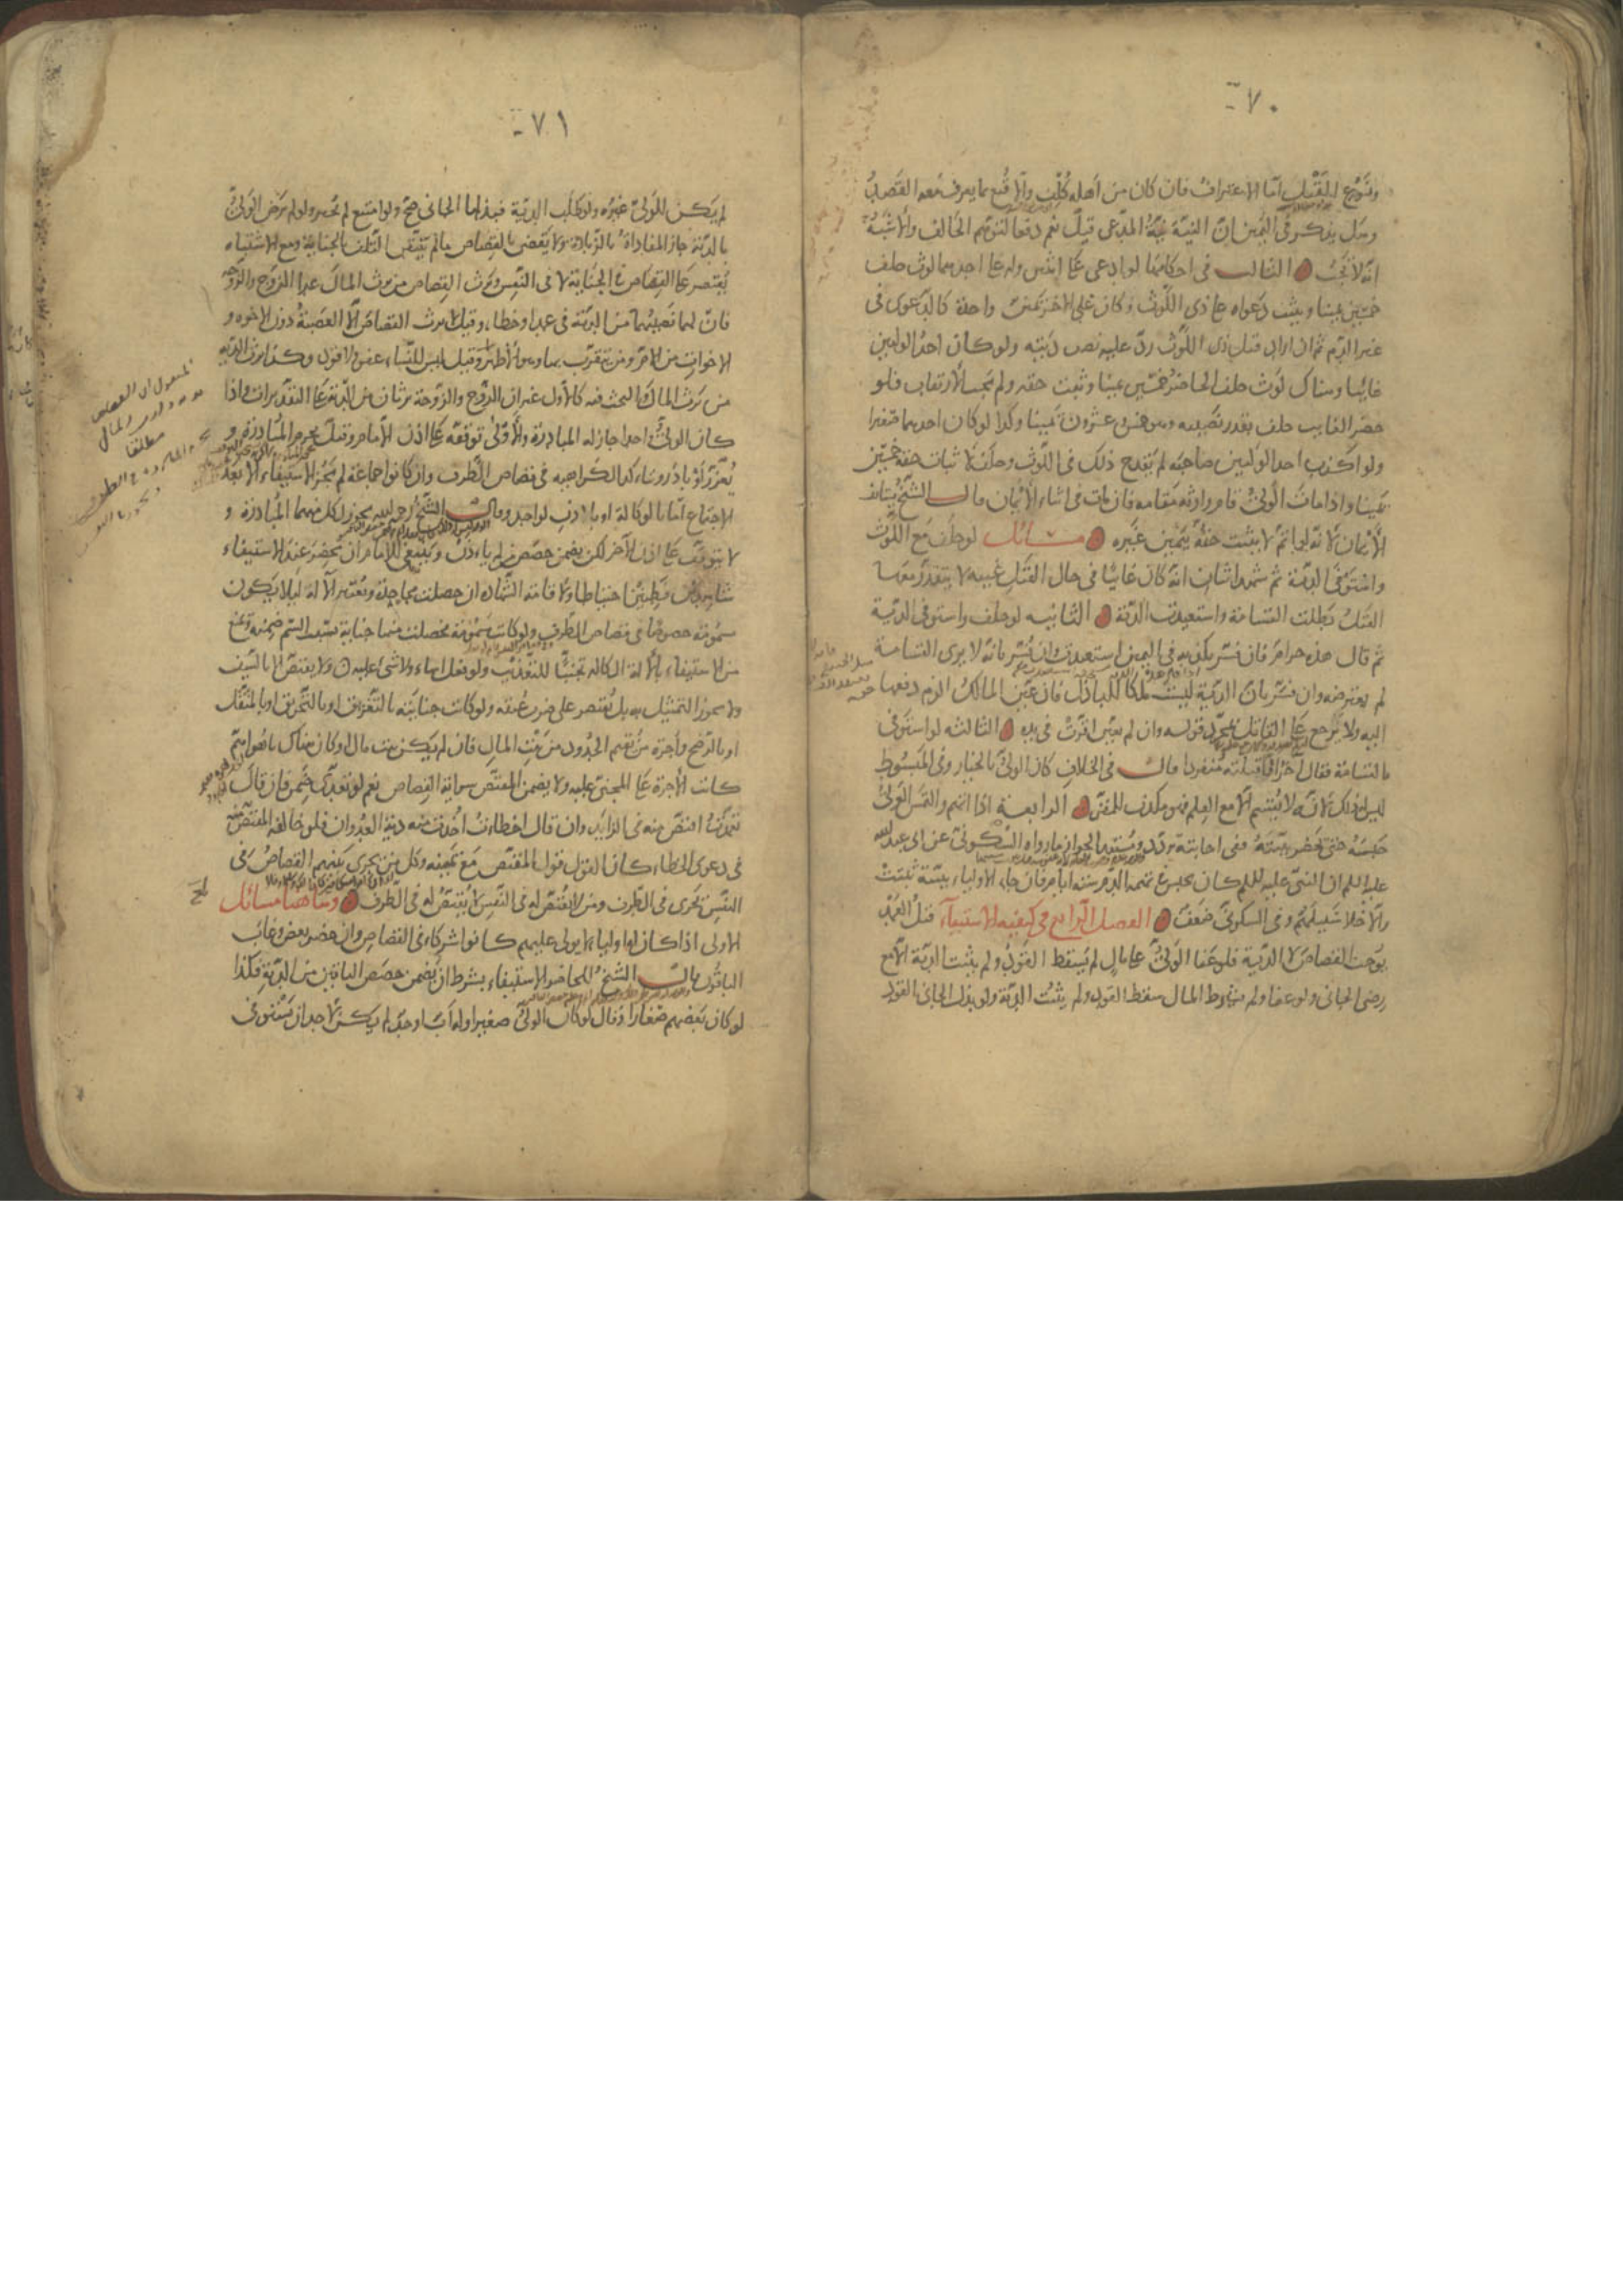 ٧٠
ونوع القتل اما الاعراب فان كان من اهله كلف والا قنع بما يعرف معه القصد
وهل يذكر في اليمين ان النية نية المدعى قيل نعم دفعا لتوهم الحالف والاشبه
انه لا يجب الثالث في احكامها لو ادعى على اثنين وله على احدهما لوث حلف
خمسين يمينا ويثبت دعواه على ذى اللوث وكان على الاخر يمين واحدة كالدعوى في
غير الدم ثم ان اراد قتل ذى اللوث رد عليه نصف ديته ولو كان احد الوليين
غائبا وهناك لوث حلف الحاضر خمسين يمينا وثبت حقه ولم يجب الارتقاب فلو
حضر الغايب حلف بقدر نصيبه وهو خمس وعشرون يمينا وكذا لو كان احدهما صغيرا
ولو اكذب احد الوليين صاحبه لم يقدح ذلك في اللوث وحلف لاثبات حقه خمسين
يمينا واذا مات الولى قام وارثه مقامه فان مات في اثناء الايمان قال الشيخ يستانف
الايمان لانه لو اتم لاثبت حقه بيمين غيره مسائل لو حلف مع اللوث
واستوفى الدية ثم شهد اثنان انه كان غائبا في حال القتل غيبة لا يتقدر معها
القتل بطلت القسامة واستعيدت الدية الثانيه لو حلف واستوفى الدية
ثم قال هذه حرام فان فسر بكذبه في اليمين استعيدت وان فسر بانه لا يرى القسامة
لم يعترضه وان فسر بان الدية ليست ملكا للباذل فان عين المالك الزم دفعها
اليه ولا يرجع على القاتل بمجرد قوله وان لم يعين اقرت في يده الثالثه لو استوفى
بالقسامة فقال آخر انا قتلته منفردا قال في الخلاف كان الولى بالخيار وفي المبسوط
ليس له ذلك لانه لا يقسم الا مع العلم فهو مكذب للمقر الرابعة اذا اتهم والتمس الولى
حبسه حتى يحضر بينته ففى اجابته تردد ومستند الجواز ما رواه السكونى عن ابى عبد الله
عليه السلم ان النبى عليه السلم كان يحبس في تهمة الدم ستة ايام فان جاء الاولياء ببينة تثبت
والا خلا سبيلهم وفي السكونى ضعف الفصل الرابع في كيفيه الاستيفاء قتل العمد
يوجب القصاص لا الدية فلو عفا الولى على مال لم يسقط القود ولم يثبت الدية الا مع
رضى الجانى ولو عفا ولم يشترط المال سقط القود ولم يثبت الدية ولو بذل الجانى القود
٧١
لم يكن للولى غيره ولو طلب الدية فبذلها الجانى صح ولو امتنع لم يجبر ولو لم يرض الولى
بالدية جاز المفاداة بالزيادة ولا يقضى بالقصاص ما لم يتيقن التلف بالجناية ومع الاشتباه
يقتصر على القصاص في الجناية لا في النفس ويرث القصاص من يرث المال عدا الزوج والزوجة
فان لهما نصيبهما من الدية في عمد او خطاء وقيل لا يرث القصاص الا العصبة دون الاخوة و
الاخوات من الام ومن يتقرب بها وهو الاظهر وقيل ليس للنساء عفو ولا قود وكذا يرث الدية
من يرث المال والبحث فيه كالاول غير ان الزوج والزوجة يرثان من الدية على التقديرات واذا
كان الولى واحدا جاز له المبادرة والاولى توقفه على اذن الامام وقيل يحرم المبادرة و
يعزر لو بادر ويتاكد الكراهية في قصاص الطرف وان كانوا جماعة لم يجز الاستيفاء الا بعد
الاجتماع اما بالوكالة او بالاذن لواحد وقال الشيخ رحمه الله يجوز لكل منهما المبادرة و
لا يتوقف على اذن الآخر لكن يضمن حصص من لم ياذن وينبغى للامام ان يحضر عند الاستيفاء
شاهدين فطنين احتياطا ولاقامة الشهادة ان حصلت مجاحدة ويعتبر الآلة ليلا يكون
مسمومة خصوصا في قصاص الطرف ولو كانت مسمومة فحصلت منها جناية بسبب السم ضمنه ويمنع
من الاستيفاء بالالة الكالة تجنبا للتعذيب ولو فعل اساء ولا شى عليه ولا يقتص الا بالسيف
ولا يجوز التمثيل به بل يقتصر على ضرب عنقه ولو كانت جنايته بالتغريق او بالتحريق او بالمثقل
او بالرضخ واجرة من يقيم الحدود من بيت المال فان لم يكن بيت مال او كان هناك ما هو اهم
كانت الاجرة على المجنى عليه ولا يضمن المقتص سراية القصاص نعم لو تعدى ضمن فان قال
تعمدت اقتص منه في الزايد وان قال اخطات اخذت منه دية العدوان ولو خالفه المقتص منه
في دعوى الخطاء كان القول قول المقتص مع يمينه وكل من يجرى بينهم القصاص في
النفس يجرى في الطرف ومن لا يقتص له في النفس لا يقتص له في الطرف وهاهنا مسائل
الاولى اذا كان له اولياء لا يولى عليهم كانوا شركاء في القصاص وان حضر بعض وغاب
الباقون قال الشيخ للحاضر الاستيفاء بشرط ان يضمن حصص الباقين من الدية وكذا
لو كان بعضهم صغارا وقال لو كان الولى صغيرا وله اب او جد لم يكن لاحد ان يستوفى